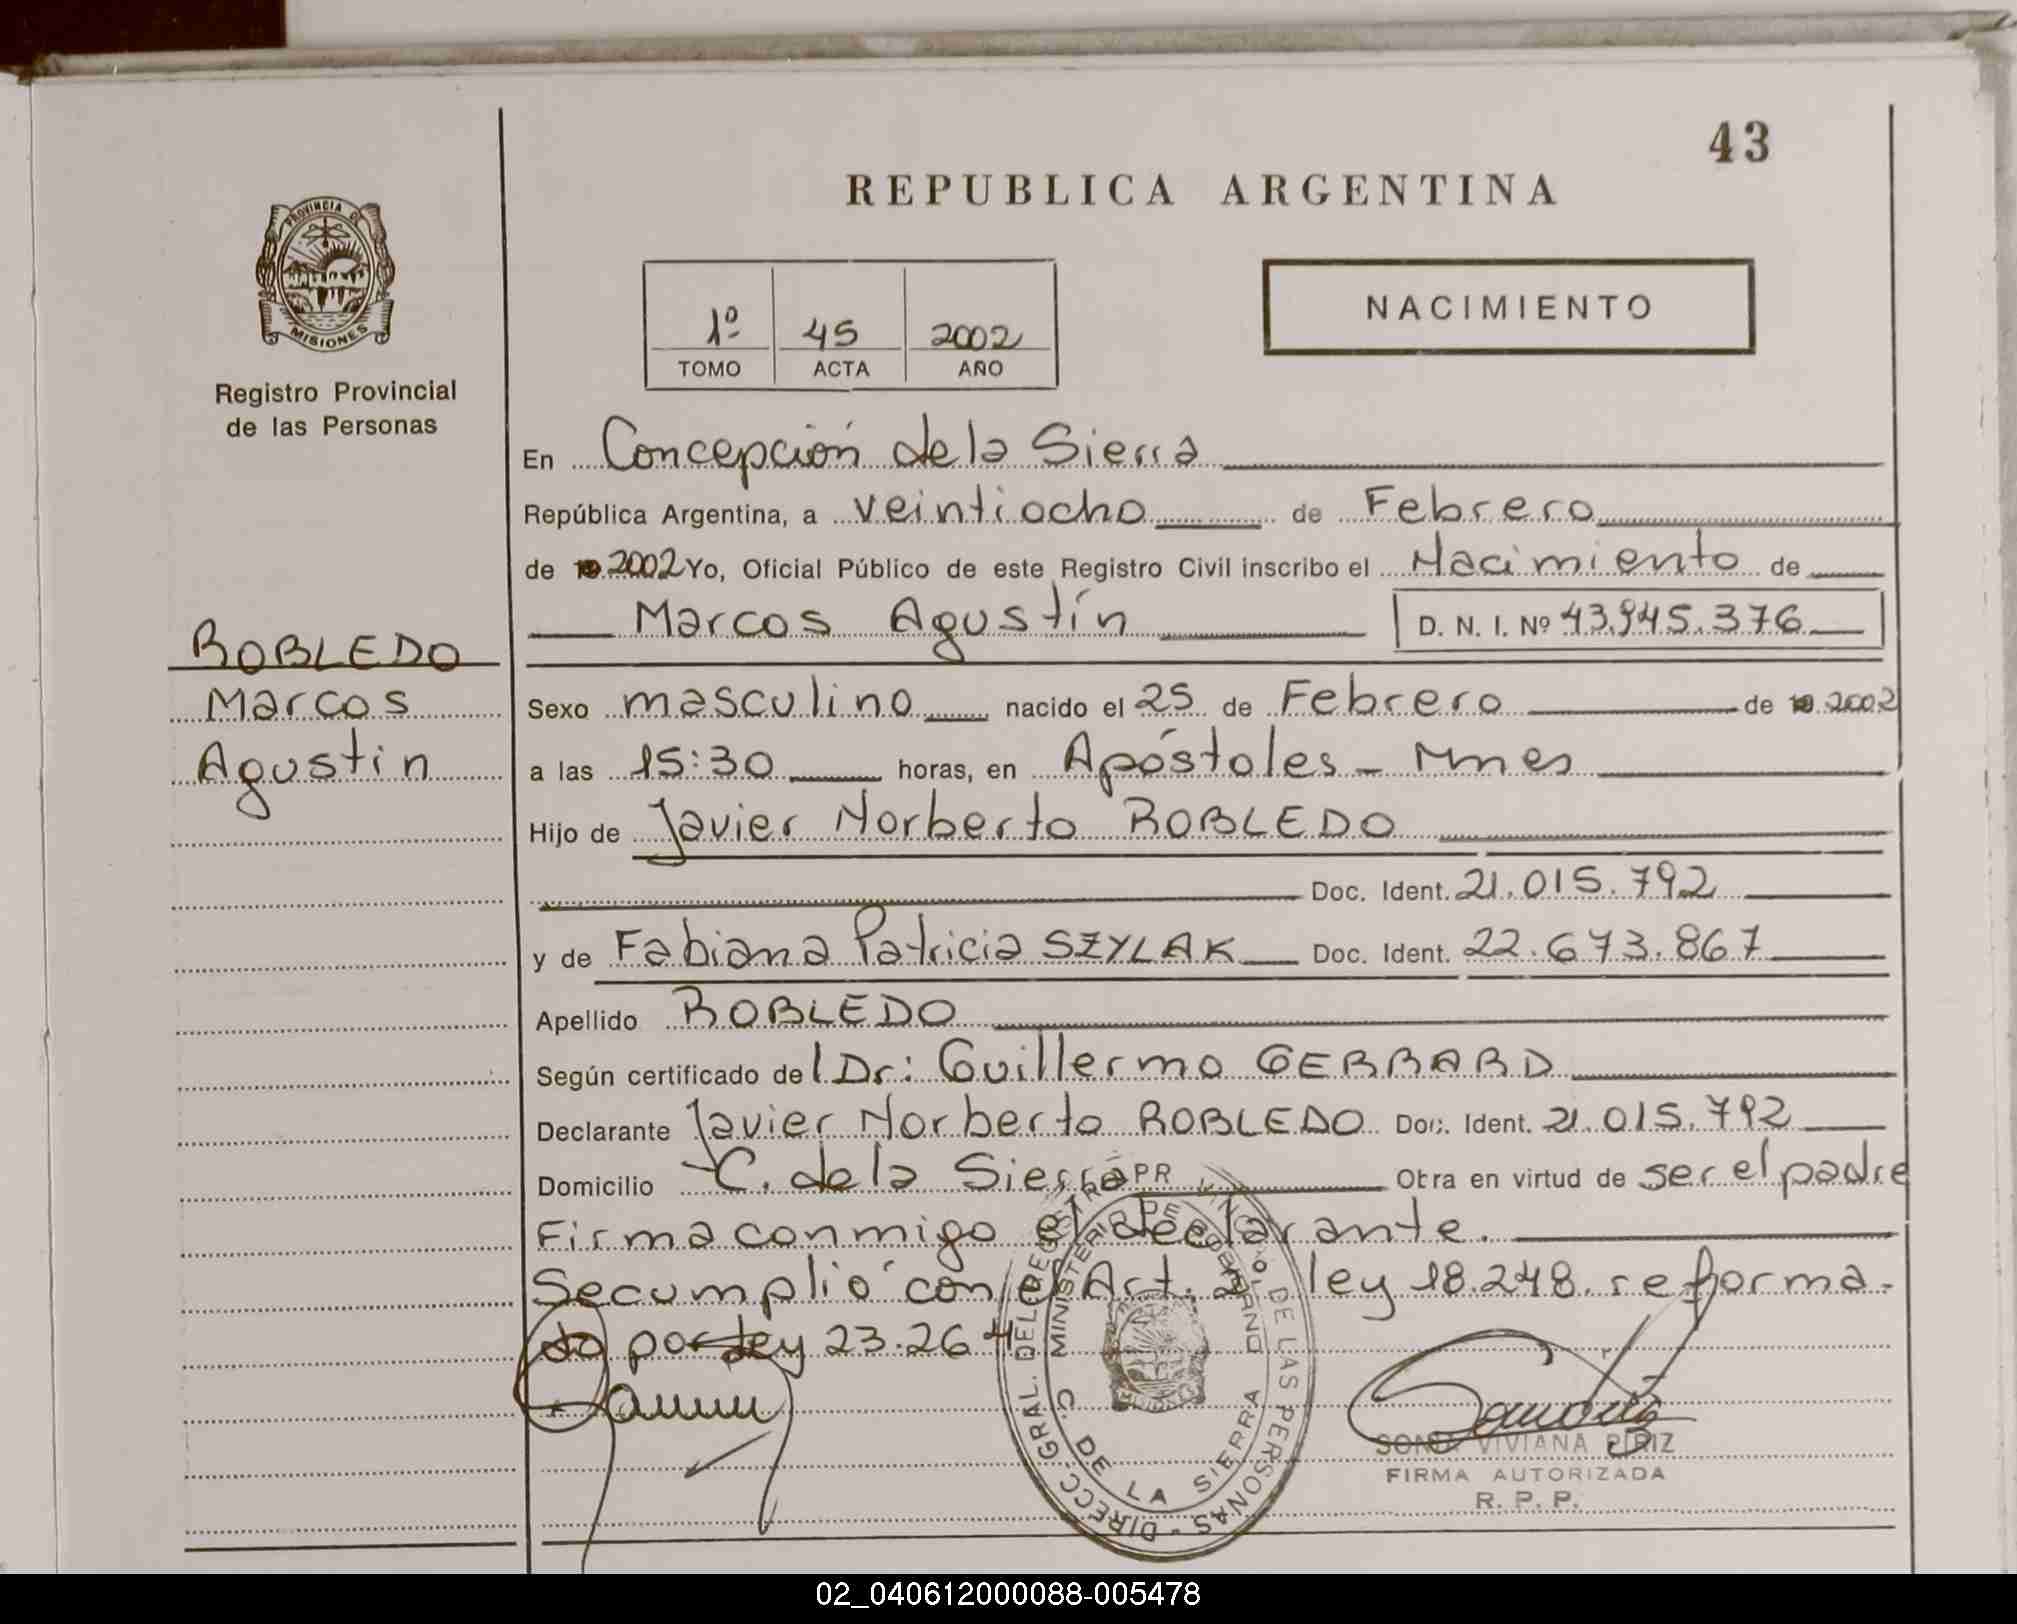 43
REPUBLICA ARGENTINA
PROVINCIA DE
MISIONES
Registro Provincial
de las Personas
1º 45 2002
TOMO ACTA AÑO
NACIMIENTO
En Concepción de la Sierra
República Argentina, a veintiocho de Febrero
de 2002 Yo, Oficial Público de este Registro Civil inscribo el Nacimiento de
Marcos Agustín D. N. I. Nº 43.945.376
ROBLEDO
Marcos
Agustin
Sexo masculino nacido el 25 de Febrero de 2002
a las 15:30 horas, en Apóstoles - Mnes
Hijo de Javier Norberto ROBLEDO
Doc. Ident. 21.015.792
y de Fabiana Patricia SZYLAK Doc. Ident. 22.673.867
Apellido ROBLEDO
Según certificado del Dr: Guillermo GERRARD
Declarante Javier Norberto ROBLEDO Doc. Ident. 21.015.792
Domicilio C. de la Sierra Obra en virtud de ser el padre
Firma conmigo el declarante.
Se cumplió con el Art. 2º ley 18.248. reforma-
do por ley 23.264
DIRECC. GRAL. DEL REGISTRO PROVINC. DE LAS PERSONAS -
MINISTERIO DE GOBIERNO
C. DE LA SIERRA
SONIA VIVIANA PIRIZ
FIRMA AUTORIZADA
R. P. P.
02_040612000088-005478